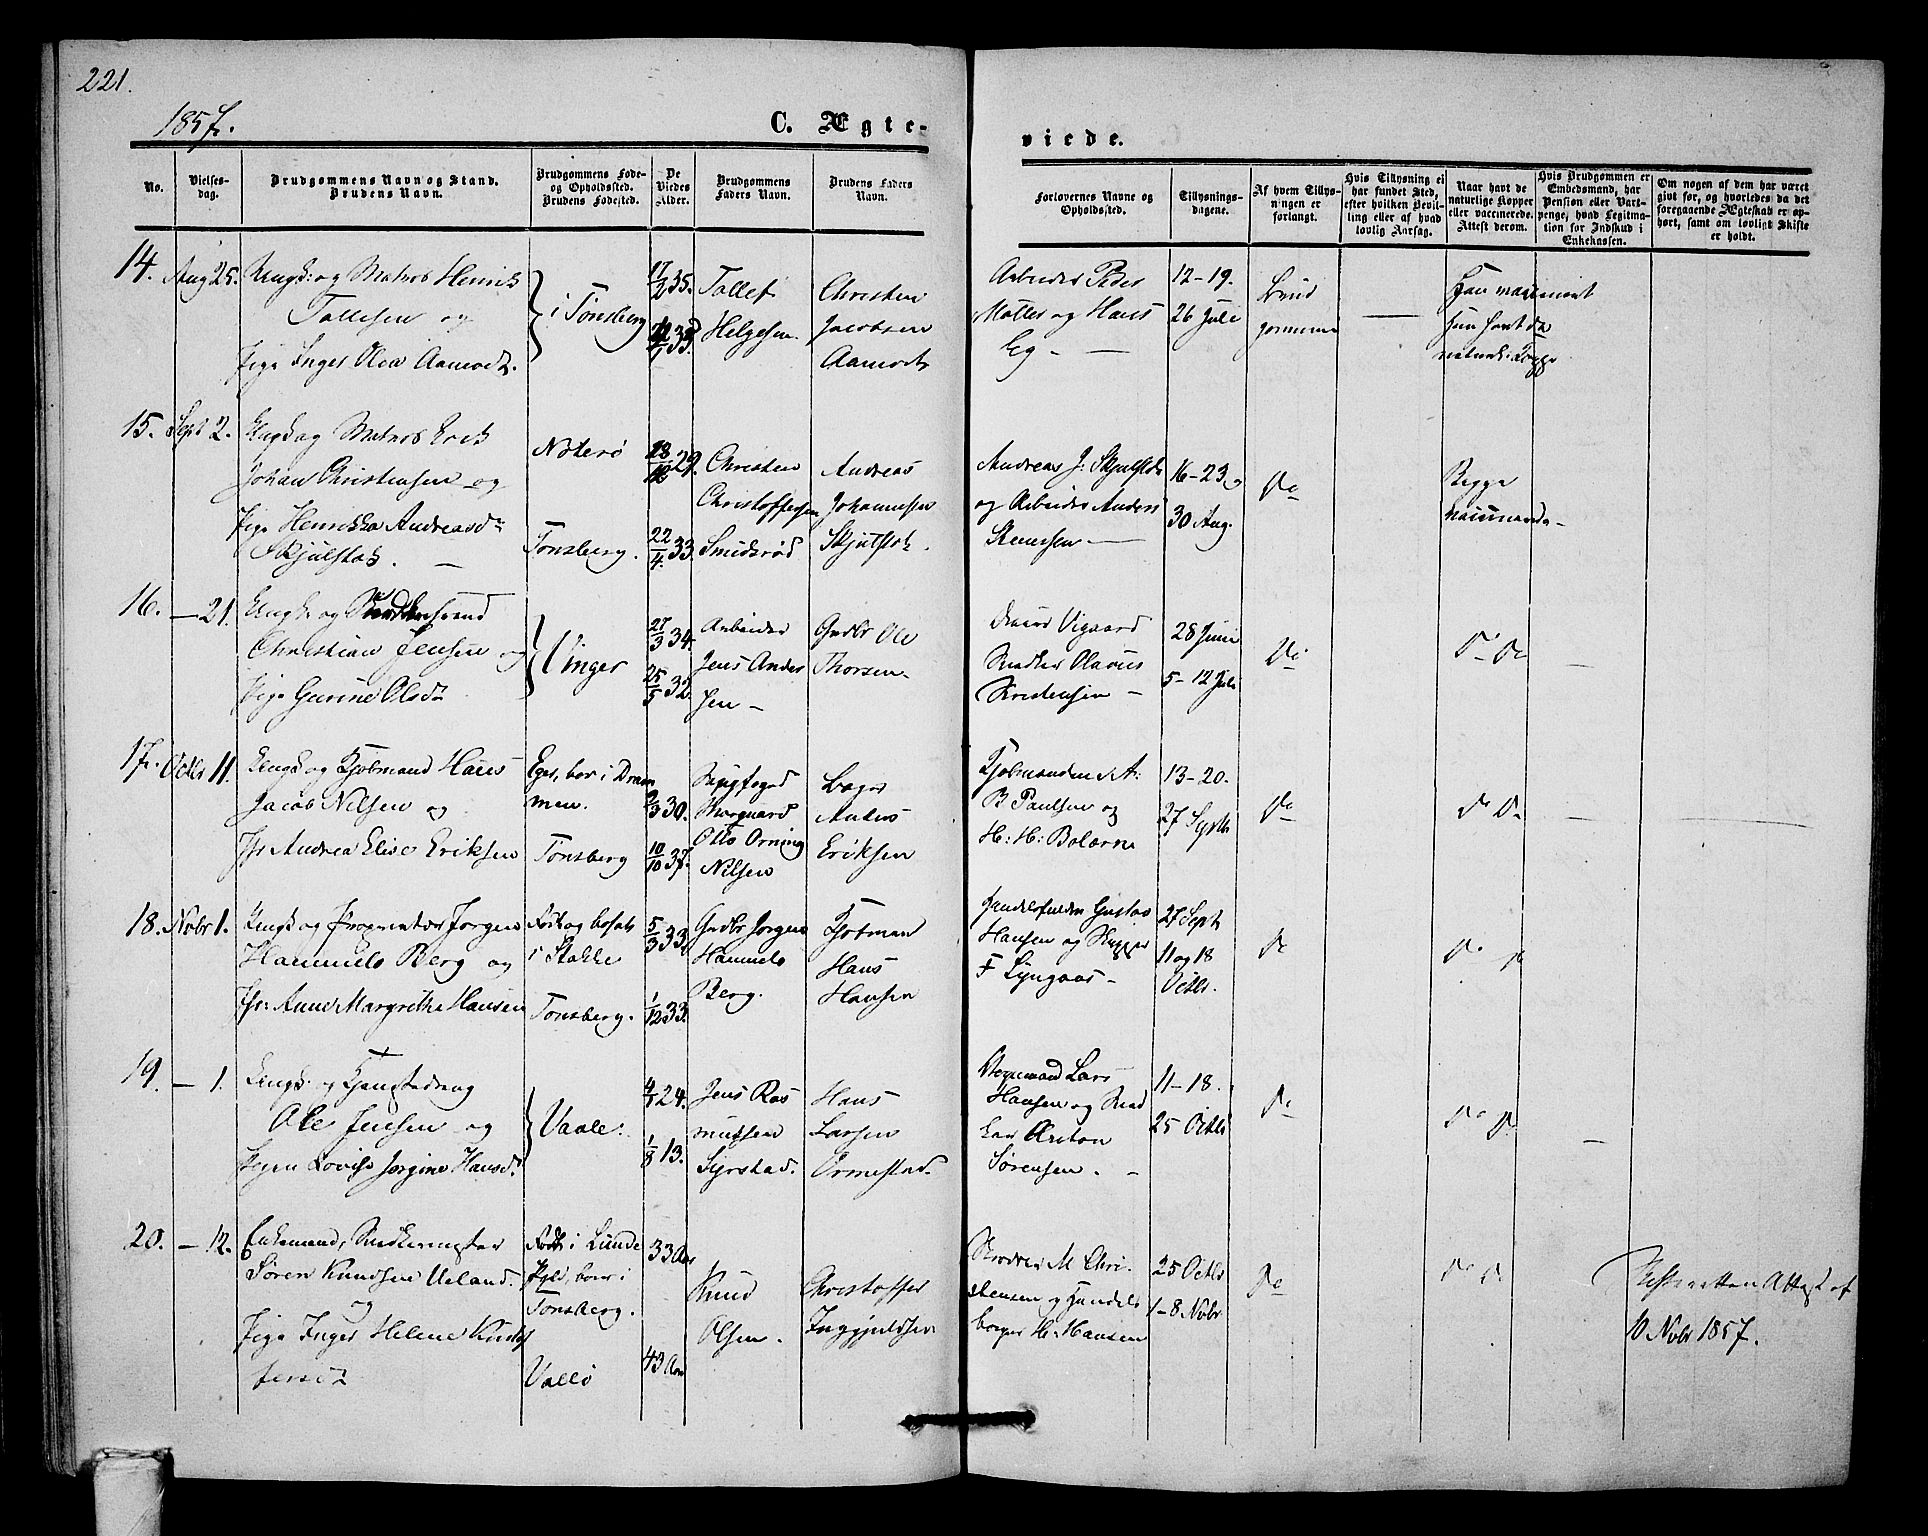 221.
1857.
C. Ægte-
viede.
No.
Vielses-
dag.
Brudgommens Navn og Stand.
Brudens Navn.
Brudgommens Føde-
og Opholdssted.
Brudens Fødested.
De
Viedes
Alder.
Brudgommens
Faders Navn.
Brudens Faders
Navn.
Forlovernes Navne og
Opholdssted.
Tillysnings-
dagene.
Af hvem Tillys-
ningen er
forlangt.
Hvis Tillysning ei
har fundet Sted,
efter hvilken Bevil-
ling eller af hvad
lovlig Aarsag.
Naar havt de
naturlige Kopper
eller vaccinerede.
Attest derom.
Hvis Brudgommen er
Embedsmand, har
Pension eller Vart-
penge, hvad Legitima-
tion for Indskud i
Enkekassen.
Om nogen af dem har været
givt før, og hvorledes da det
foregaaende Ægteskab er op-
hørt, samt om lovligt Skifte
er holdt.
14. Aug 25. Ungk: og Matros Henrik
Tollefsen og
Pige Inger Olea Aamodt.
i Tønsberg
17/2 35.
33.
Tollef
Helgesen.
Christen
Jacobsen
Aamodt
Arbeider Peder
Møller og Hans
Eg —
12-19.
26 Juli
Brud
gommen
—
Han vaccineret
hun havt de
naturl: Kopper
15. Sept 2. Ungk og Matros Erik
Johan Christensen og
Pige Henrikka Andreasdr
Skjulstad. —
Nøterø
Tønsberg.
29.
22/4 33.
Christen
Christoffersen
Smidsrød
Andreas
Johannesen
Skjulstd.
Andreas J: Skjulstd
og Arbeider Anders
—
16-23.
30 Aug.
Do
Begge
vaccinerede
16. — 21. Ungk og
Christian Jensen og
Pige Gurine Olsdr
Vinger
27/3 34.
25/5 32.
Arbeider
Jens Ander
sen —
Grdbr Ole
Thorsen
Vigaard
Snedker Olavus
Kristensen —
28 Juni
5-12 Juli
Do
Do Do
—
17. Octbr 11. Ungk og Kjøbmand Hans
Jacob Nilsen og
Jfr Andrea Elise Eriksen
Eger, bor i Dram
men.
Tønsberg
9/3 30.
10/10 37.
Otto Orning
Nilsen
Anders
Eriksen
Kjøbmændene A:
B Paulsen og
H: H: Bolærne
13-20.
27 Septb
Do
Do Do
—
18. Novbr 1. Ungk og Proprietær Jørgen
Hammelo Berg og
Jfr: Anne Margrethe Hansen
Født og bosat
i Stokke
Tønsberg.
5/3 33.
1/12 33.
Grdbr Jørgen
Hammelo
Berg.
Kjøbman
Hans
Hansen
Gustav
Hansen og Skipper
F Lyngaas —
27 Sept
11 og 18
Octbr.
Do
Do Do
19. — 1. Ungk: og Tjenestedreng
Ole Jensen og
Pigen Lovise Jørgine Hansd.
Vaale.
24.
1/8 13.
Jens Ras
mussen
Hans
Larsen
Ormestad.
Lars
Hansen og Sned
ker Anton
Sørensen. —
11-18.
25 Octbr
Do
Do Do
—
20. — 12. Enkemand, Snedkermester
Søren Knudsen Ueland.
og
Pige Inger Helene Christof
fersdr
Født i Lunde
Pgld, boer i
Tønsberg.
Valløe
33 Aar
43 Aar
Knud
Olsen.
Christoffer
Inggjeldsen
M Chri-
stensen og Handels
borger H: Hansen
25 Octbr
1-8 Novbr
Do
Do Do
Skifterettens Attest af
10 Novbr 1857.